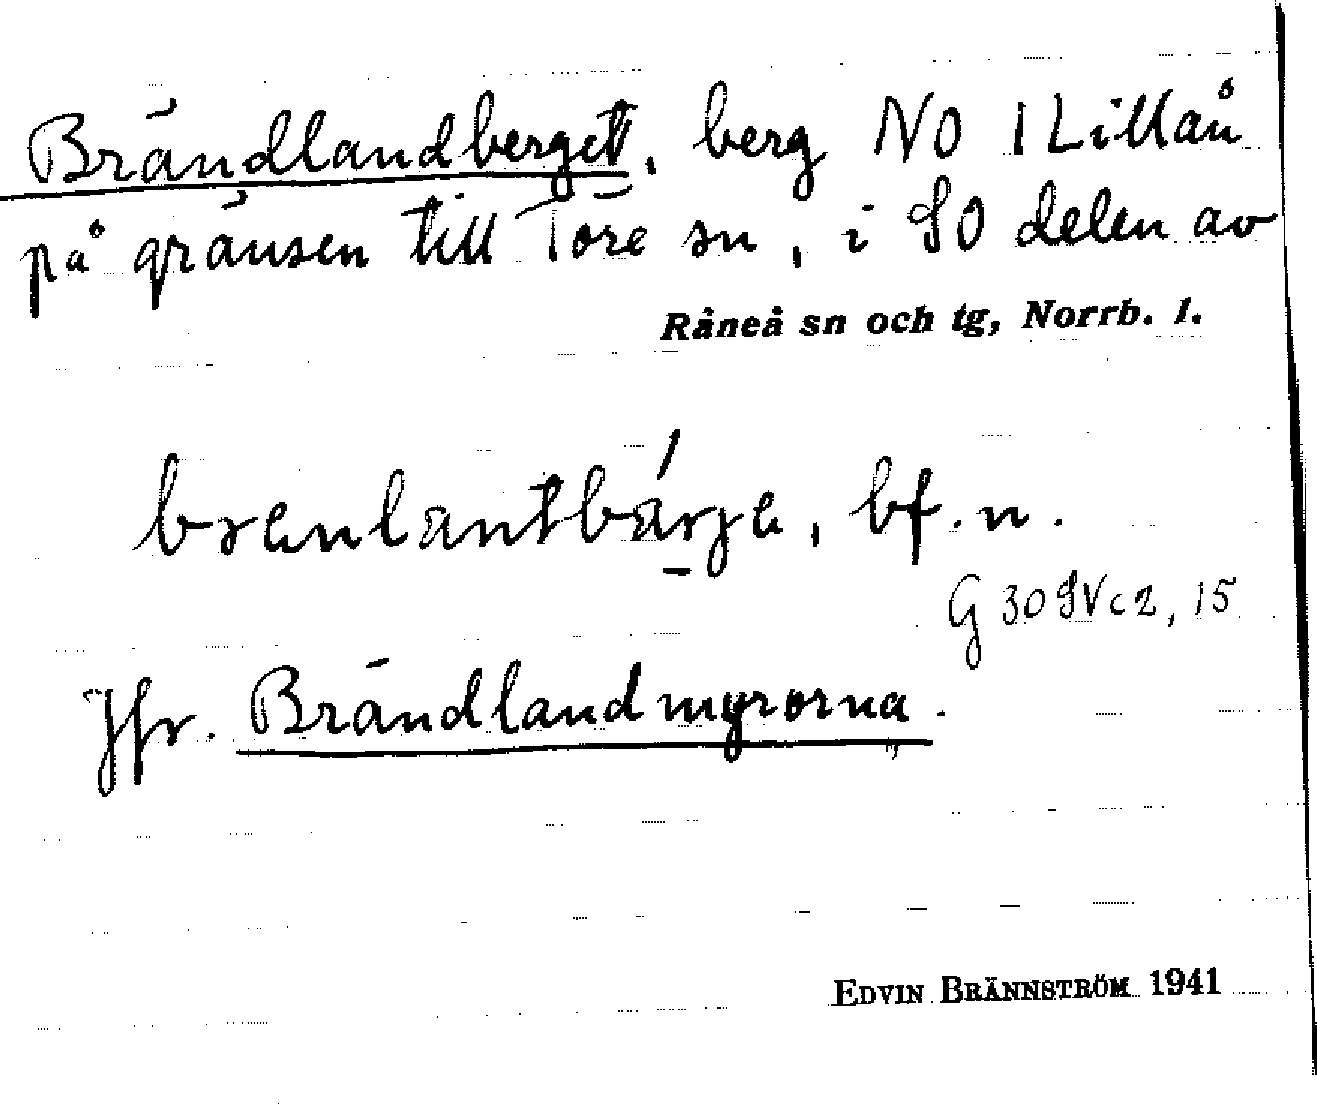 Brändlandberget, berg NO 1 Lillån
på gränsen till Töre sn, i SO delen av
Råneå sn och tg, Norrb. l.
brenlantbárja, bf. n.
G 30 SV c 2, 15
Jfr. Brändlandmyrorna.
EDVIN BRÄNNSTRÖM 1941